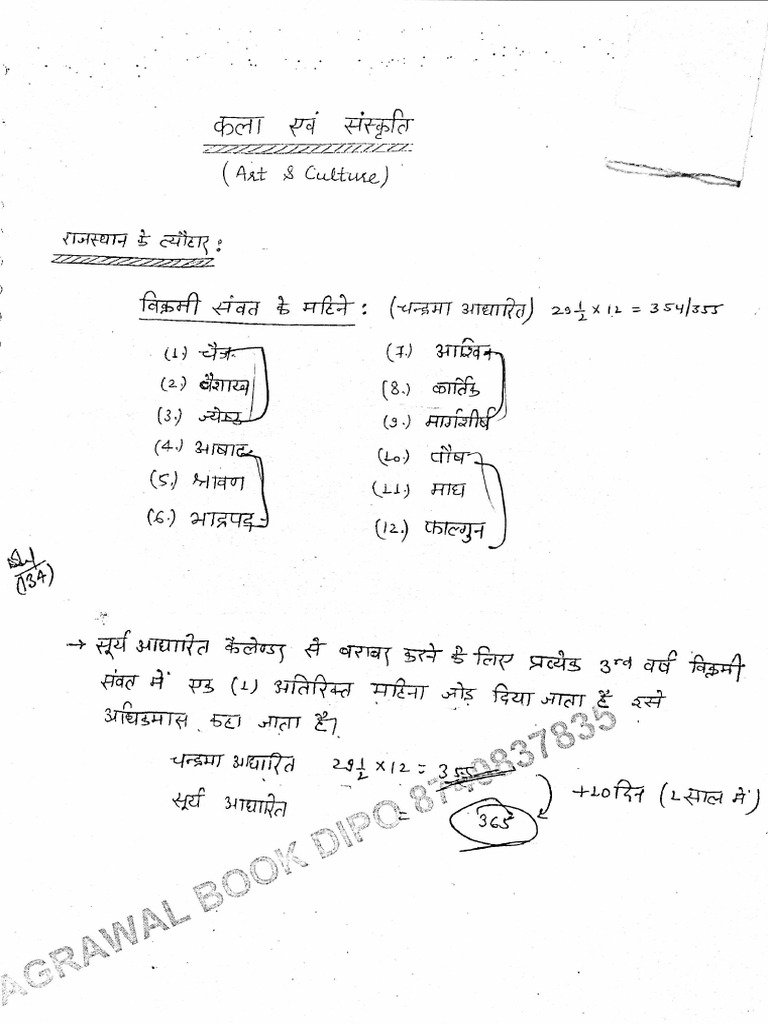 कला एवं संस्कृति
(Art & Culture)
राजस्थान के त्यौहार :
विक्रमी संवत के महिने : (चन्द्रमा आधारित) 29 1/2 × 12 = 354/355
(1.) चैत्र
(2.) वैशाख
(3.) ज्येष्ठ
(4.) आषाढ
(5.) श्रावण
(6.) भाद्रपद
(7.) आश्विन
(8.) कार्तिक
(9.) मार्गशीर्ष
(10.) पौष
(11.) माघ
(12.) फाल्गुन
(134)
→ सूर्य आधारित कैलेण्डर से बराबर करने के लिए प्रत्येक 3rd वर्ष विक्रमी
संवत में एक (1) अतिरिक्त महिना जोड़ दिया जाता है इसे
अधिकमास कहा जाता है।
चन्द्रमा आधारित 29 1/2 × 12 = 355
सूर्य आधारित = 365
+10 दिन (1 साल में)
AGRAWAL BOOK DIPO 8740837835